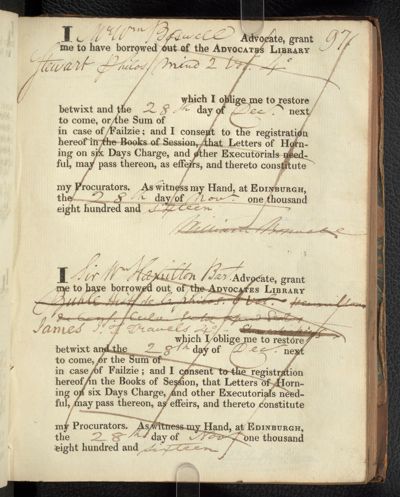 I Mr Wm Boswell Advocate, grant 97
me to have borrowed out of the ADVOCATES LIBRARY
Stewart Philos. mind 2 Vol. 4o
which I oblige me to restore
betwixt and the 28th day of Decr. next
to come, or the Sum of
in case of Failzie; and I consent to the registration
hereof in the Books of Session, that Letters of Horn-
ing on six Days Charge, and other Executorials need-
ful, may pass thereon, as effeirs, and thereto constitute
my Procurators. As witness my Hand, at EDINBURGH,
the 28th day of Novr. one thousand
eight hundred and sixteen
I Sir Wm Hamilton Bart Advocate, grant
me to have borrowed out of the ADVOCATES LIBRARY
Buhle Hist de la Philos.
James's Travels 4o
which I oblige me to restore
betwixt and the 28th day of Decr. next
to come, or the Sum of
in case of Failzie; and I consent to the registration
hereof in the Books of Session, that Letters of Horn-
ing on six Days Charge, and other Executorials need-
ful, may pass thereon, as effeirs, and thereto constitute
my Procurators. As witness my Hand, at EDINBURGH,
the 28th day of Novr one thousand
eight hundred and sixteen